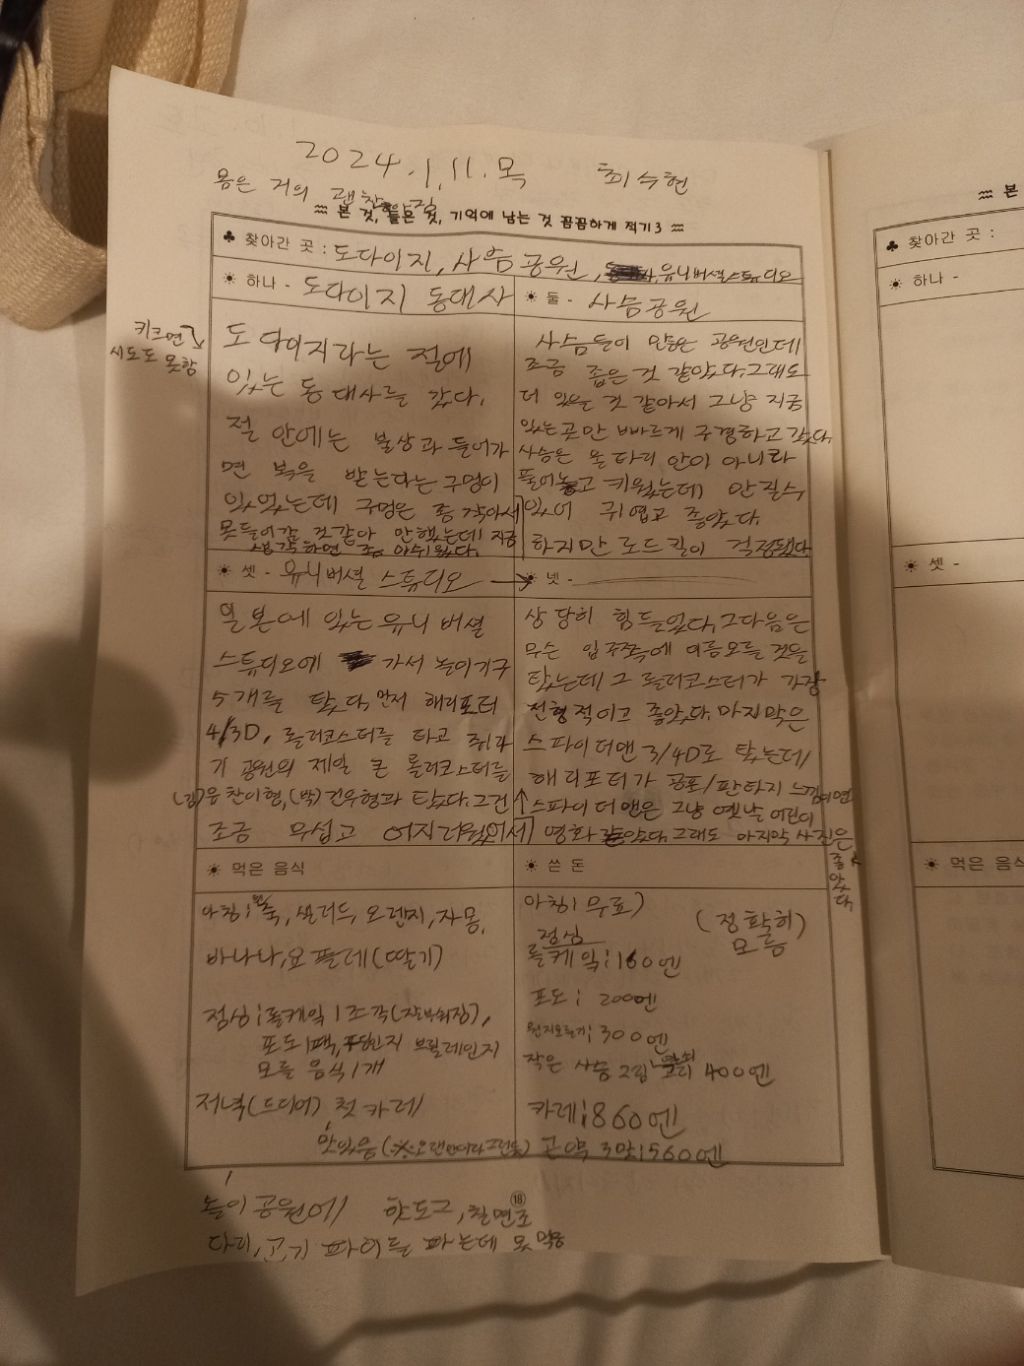 2024.1.11.목
최수현
몸은 거의 괜찮은 것
♒ 본 것, 들은 것, 기억에 남는 것 꼼꼼하게 적기3 ♒
♣ 찾아간 곳 : 도다이지, 사슴공원, 유니버셜스튜디오
☀ 하나 - 도다이지 동대사
키크면
시도도 못함
도다이지라는 절에
있는 동대사를 갔다.
절 안에는 불상과 들어가
면 복을 받는다는 구멍이
있었는데 구멍은 좀 작아서
못들어갈 것같아 안했는데 지금
생각하면 좀 아쉬웠다.
☀ 둘 - 사슴공원
사슴들이 있는 공원인데
조금 좁은 것 같았다. 그래도
더 있을 것 같아서 그냥 지금
있는 곳만 빠르게 구경하고 갔다.
사슴은 울타리 안이 아니라
풀어놓고 키웠는데 만질수
있어 귀엽고 좋았다.
하지만 로드킬이 걱정됐다
☀ 셋 - 유니버셜 스튜디오 →
일본에 있는 유니버셜
스튜디오에 가서 놀이기구
5개를 탔다. 먼저 해리포터
4/3D, 롤러코스터를 타고 쥬라
기 공원의 제일 큰 롤러코스터를
(김)유찬이형, (박)건우형과 탔다. 그건
조금 무섭고 어지러웠어서
☀ 넷 -
상당히 힘들었다. 그다음은
무슨 입구쪽에 이름모를 것을
탔는데 그 롤러코스터가 가장
전형적이고 좋았다. 마지막은
스파이더맨 3/4D로 탔는데
해리포터가 공포/판타지 느낌이면
↑스파이더맨은 그냥 옛날 어린이
명화 같았다. 그래도 마지막 사진은
좋았다.
☀ 먹은 음식
아침: 죽, 샐러드, 오렌지, 자몽,
바나나, 요플레(딸기)
점심: 롤케익 1조각
포도1팩, 브륄레인지
모를 음식1개
저녁(드디어) 첫 카레!
맛있음
놀이공원에 핫도그, 칠면조
다리, 고기 파이를 파는데 못 먹음
☀ 쓴 돈
아침: 무료)
(정확히)
모름
점심
롤케익: 160엔
포도: 200엔
300엔
작은 사슴 그림 400엔
카레: 860엔
곤약 3만1560엔
⑱
♒ 본
♣ 찾아간 곳 :
☀ 하나 -
☀ 셋 -
☀ 먹은 음식